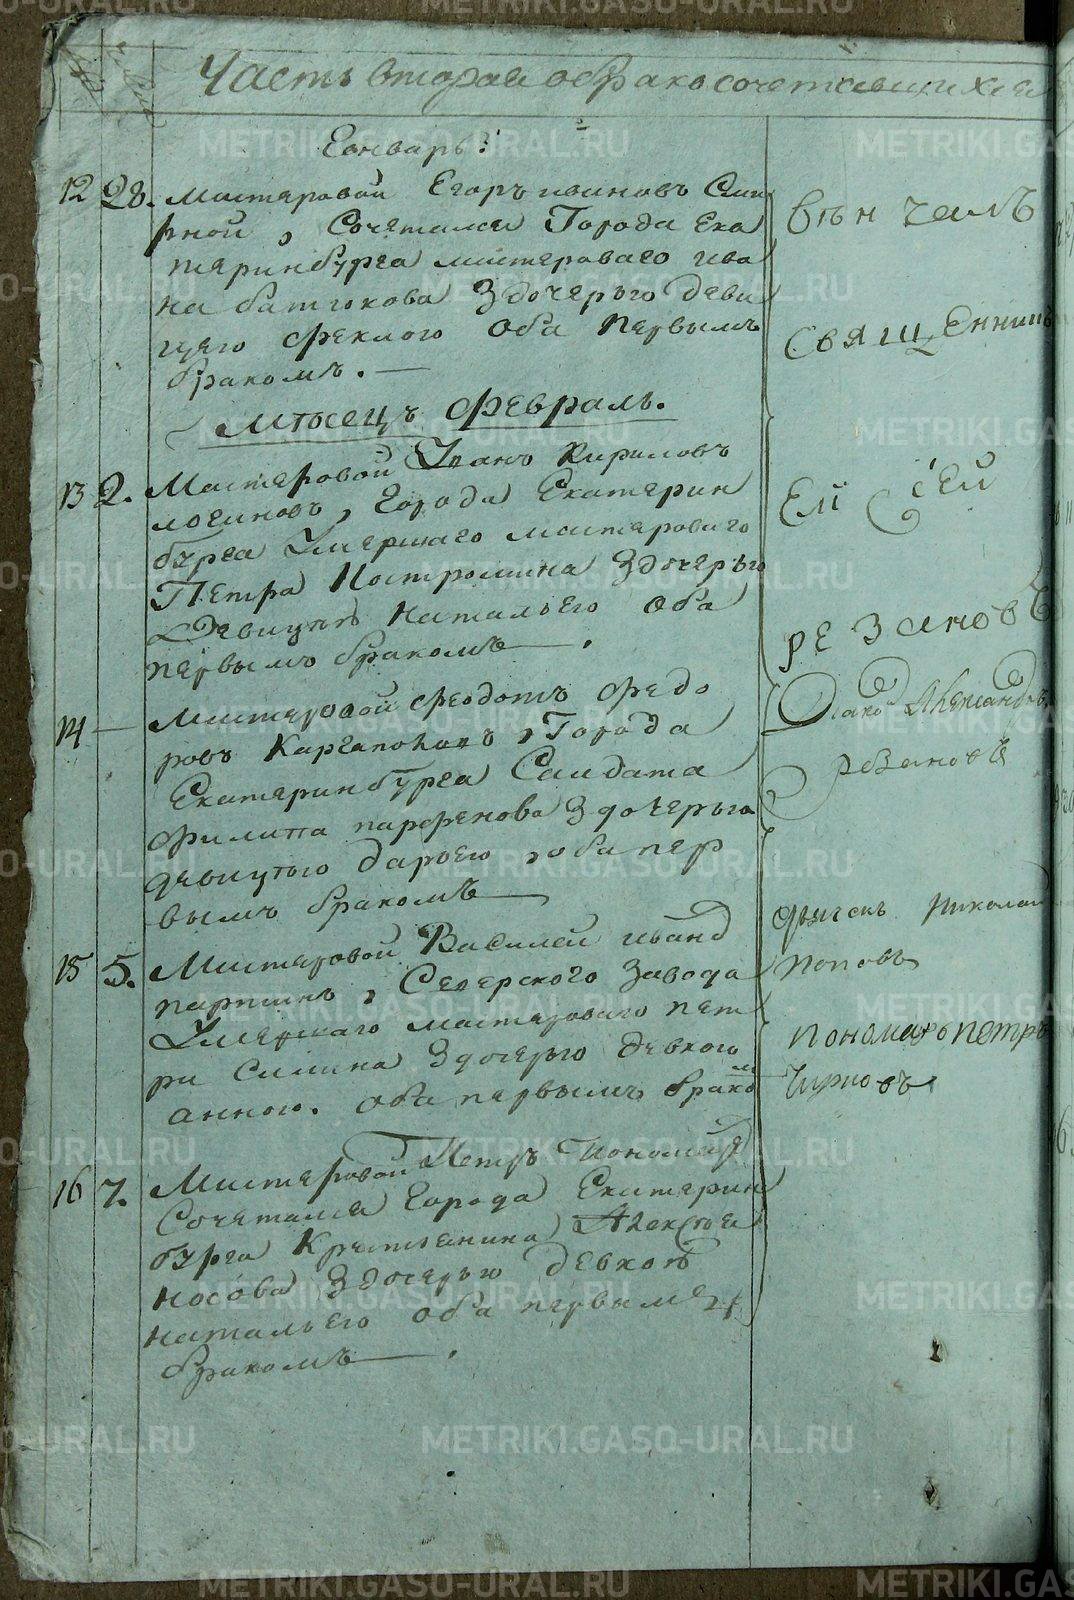 Часть вторая о бракосочетавшихся
Генварь:
12 28. мастеровой Егоръ ивановъ Смир
рной, Сочетался Города Ека
теринбурга мастероваго ива
на батюкова Здочерью деви
цею феклою Оба первымъ
бракомъ.
Мѣсецъ февраль.
13 2. Мастеровой Иванъ Кириловъ
логиновъ, Города Екатерин
бурга Умершаго мастероваго
Петра Костромина Здочерью
Девицею натальею оба
первымъ бракомъ.
14 Мастеровой феодотъ федо
ровъ Каргаполовъ, Города
Екатеринбурга Салдата
филипа парфенова Здочерью
девицею дарьею, оба пер
вымъ бракомъ
15 5. Мастеровой Василей иванов
паршинъ, Северского Завода
Умершаго мастероваго пет
ра Силина Здочерью девкою
анною. оба первымъ браком
16 7. Мастеровой Петръ Пономарев
Сочетался Города Екатерин
бурга Крестьянина Алексѣя
носова Здочерью девкою
натальею оба первымъ
бракомъ.
вѣнчалъ
Священникъ
Елисей
резановъ
Диакон Александръ
резановъ
дьячекъ николай
поповъ
пономарь петръ
Чирковъ
METRIKI.GASO-URAL.RU